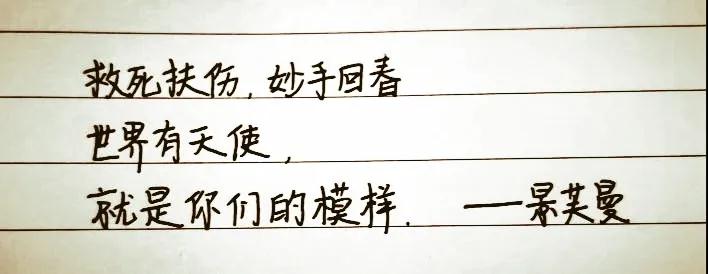 救死扶伤，妙手回春
世界有天使，
就是你们的模样. ——景芙曼